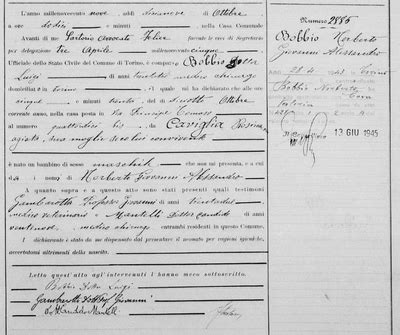 L'anno millenovecento nove, addì diannove di Ottobre
a ore dodici e minuti, nella Casa Comunale.
Avanti di me Sartorio avvocato Felice facente le veci di Segretario
per delegazione tre Aprile millenovecento cinque,
Uffiziale dello Stato Civile del Comune di Torino, è comparso Bobbio Dottor
Luigi, di anni, medico chirurgo
domiciliato in Torino, il quale mi ha dichiarato che alle ore
cinque e minuti trenta, del dì diciotto Ottobre
corrente anno, nella casa posta in Via
al numero, da Caviglia Rosina
agiata, sua moglie seco lui convivente
è nato un bambino di sesso maschile che non mi presenta, e a cui
dà i nomi di Norberto Giovanni Alessandro
A quanto sopra e a questo atto sono stati presenti quali testimoni
Gambarotta Professor Giovanni di anni
medico veterinario e Mantelli Dottor Candido di anni
ventinove, medico chirurgo entrambi residenti in questo Comune.
Il dichiarante è stato da me dispensato dal presentare il neonato per ragioni igieniche,
accertatomi altrimenti della nascita.
Letto questo atto agl'intervenuti l'hanno meco sottoscritto.
Bobbio Dottor Luigi
Gambarotta Dott Prof Giovanni
Dott Candido Mantelli
Numero 2885
Bobbio Norberto
Giovanni Alessandro
28.4 Torino
Bobbio Norberto
Valeria
13 GIU 1945